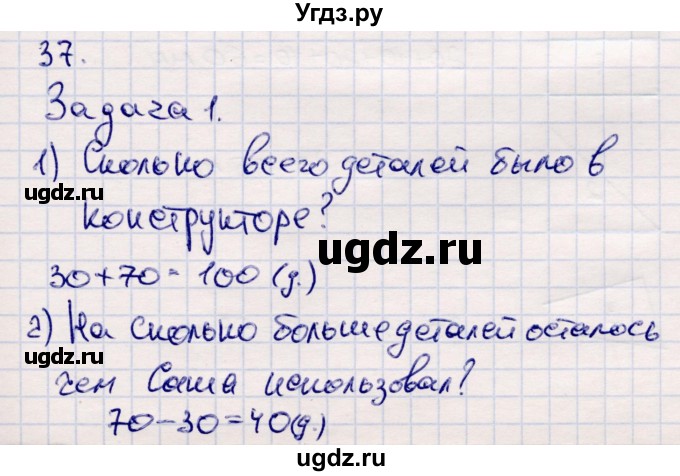 Угдз.ру
37.
Задача 1.
1) Сколько всего деталей было в
ugdz.ru
конструкторе?
ugdz.ru
30+70=100 (д.)
2) На сколько больше деталей осталось
ugdz.ru
ugdz.ru
чем Саша использовал?
70-30=40(д.)
ugdz.ru